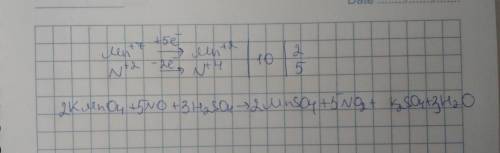 Date
Mn⁺⁷ +5e⁻→ Mn⁺² | 10 | 2
N⁺² -2e⁻→ N⁺⁴ | 5
2KMnO₄+5NO+3H₂SO₄→2MnSO₄+5NO₂+ K₂SO₄+3H₂O